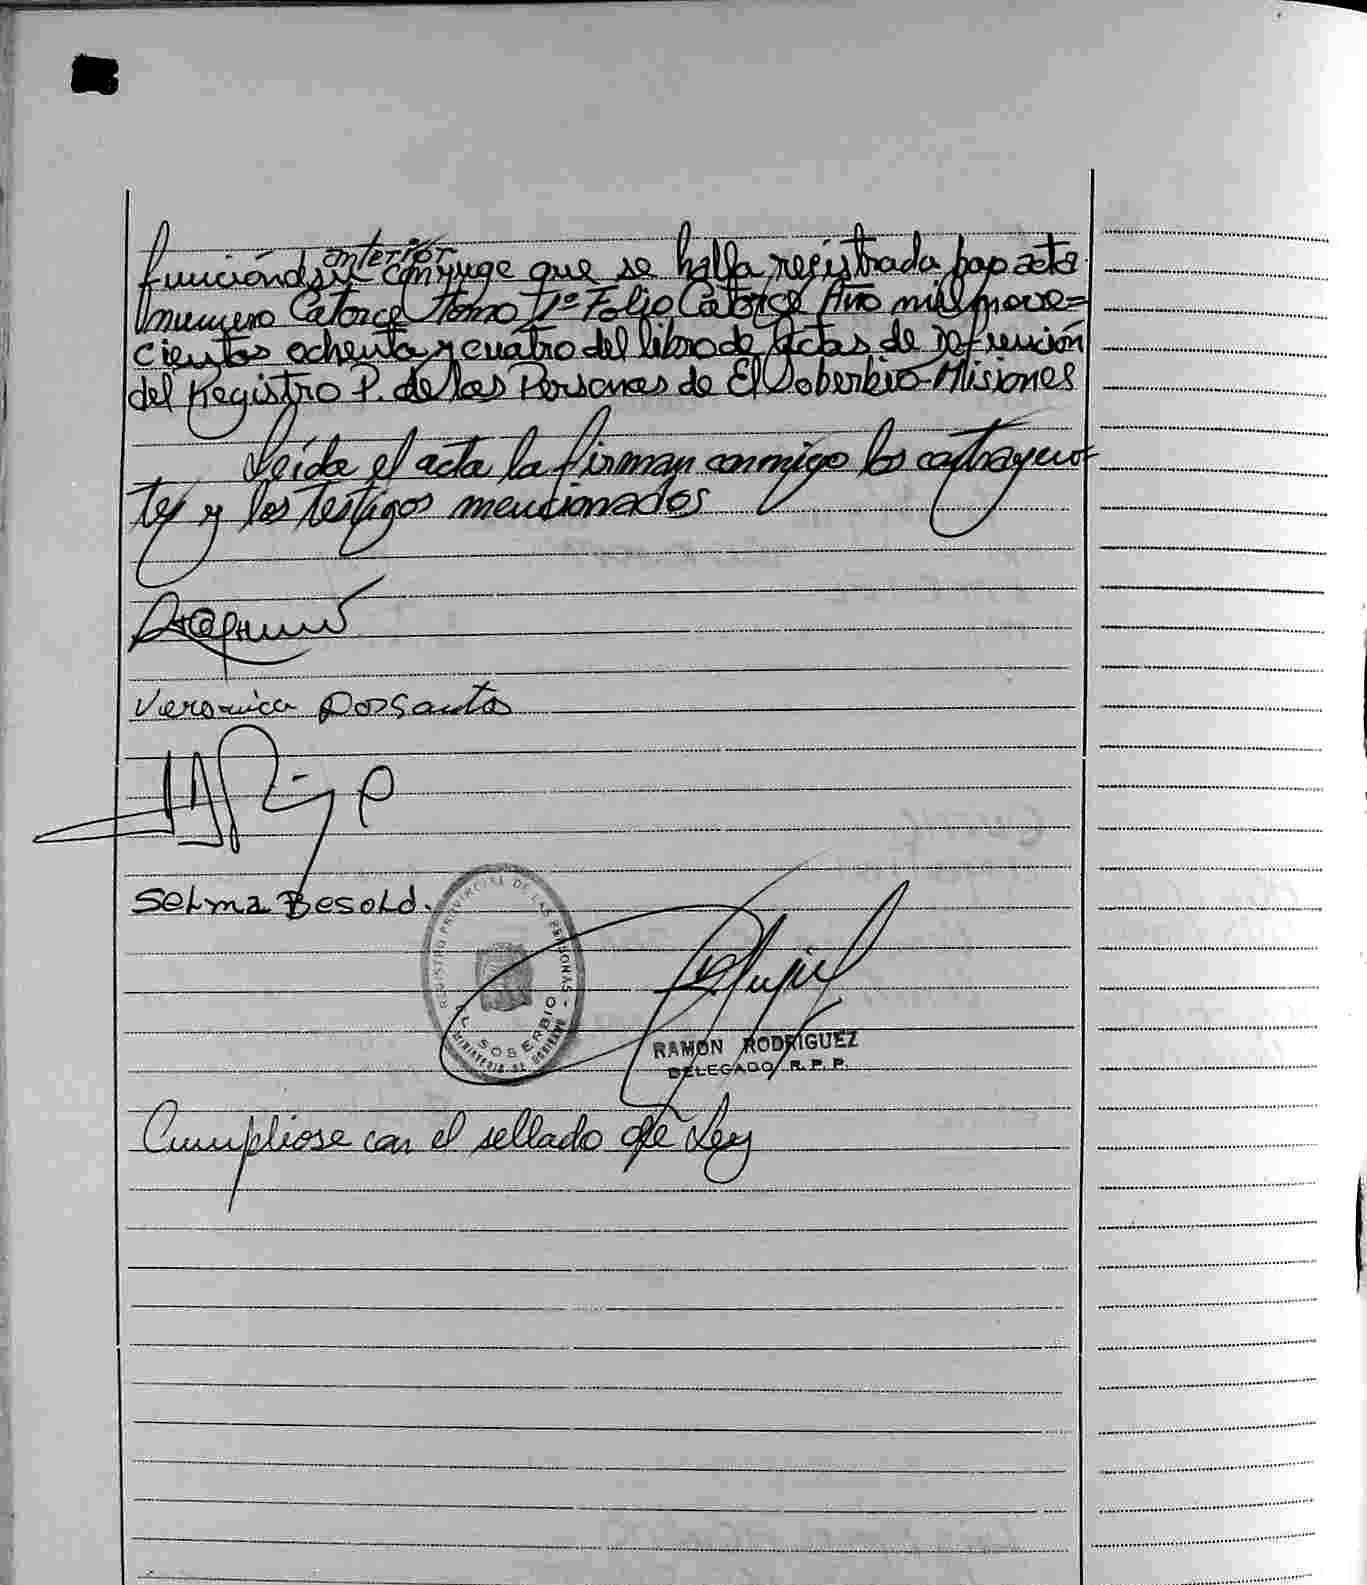 anterior
función de su conyuge que se halla registrada bajo acta
numero Catorce Tomo 1º Folio Catorce Año mil nove=
cientos ochenta y cuatro del libro de Actas de Defunción
del Registro P. de las Personas de El Soberbio-Misiones
Leída el acta la firman conmigo los contrayen-
tes y los testigos mencionados
Veronica DosSantos
Selma Besold.
REGISTRO PROVINCIAL DE LAS PERSONAS -
EL SOBERBIO
MINISTERIO DE GOBIERNO
RAMON RODRIGUEZ
DELEGADO R. P. P.
Cumpliose con el sellado de Ley